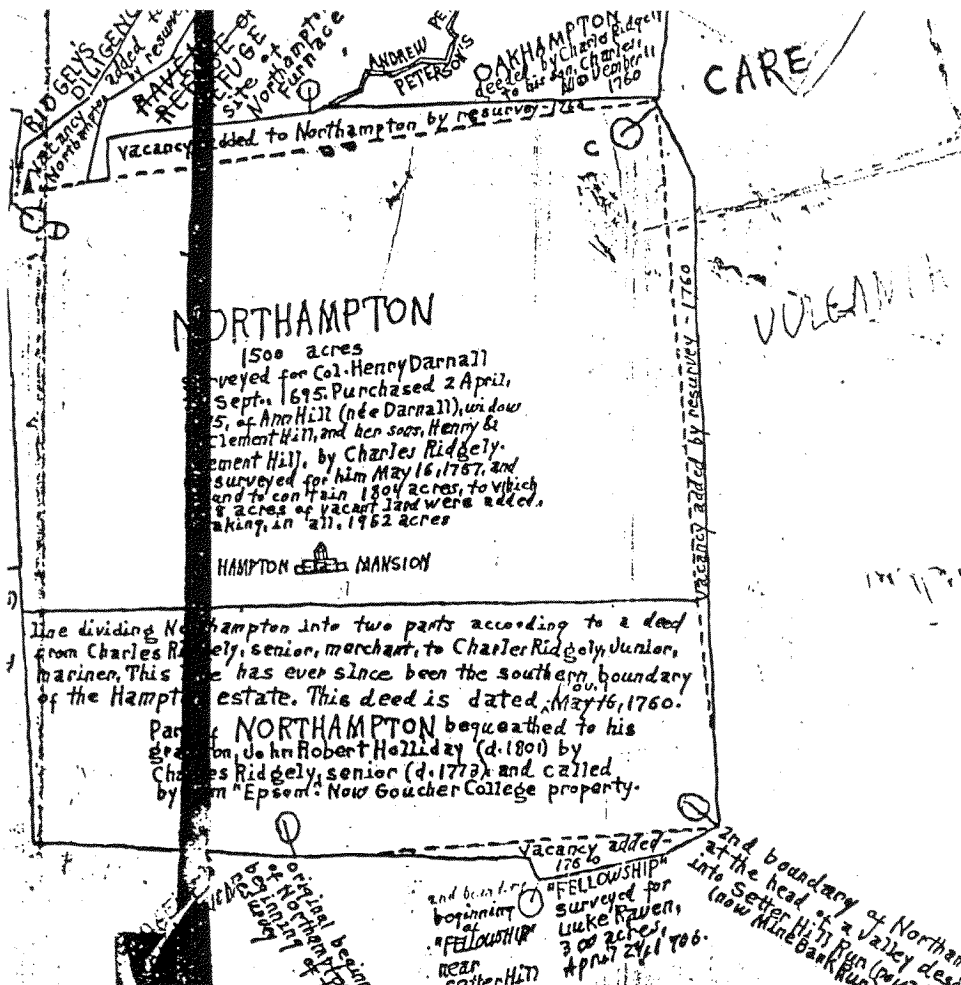 RIDGELY'S
DILIGENCE
vacancy added to
Northampton by resurvey
REFUGE
site of
Northampton
Furnace
ANDREW
PETERSON'S
OAKHAMPTON
deeded by Charles Ridgely
to his son, Charles,
November 11
1760
CARE
vacancy added to Northampton by resurvey-1760
C
D
VULCANIA
vacancy added by resurvey-1760
NORTHAMPTON
1500 acres
rveyed for Col. Henry Darnall
Sept. 1695. Purchased 2 April,
5, of Ann Hill (née Darnall), widow
Clement Hill, and her sons, Henry &
ement Hill, by Charles Ridgely.
surveyed for him May 16, 1757, and
and to contain 1804 acres, to which
8 acres of vacant land were added,
aking, in all, 1962 acres
HAMPTON MANSION
Line dividing Northampton into two parts according to a deed
from Charles Ridgely, senior, merchant, to Charles Ridgely, Junior,
mariner. This has ever since been the southern boundary
of the Hampt estate. This deed is dated May 16, 1760.
Nov.
Part of NORTHAMPTON bequeathed to his
grandson, John Robert Holliday (d. 1801) by
Charles Ridgely, senior (d. 1772) and called
by him "Epsom". Now Goucher College property.
vacancy added-
1760
original beginn
of Northampton
beginning of
resurvey
2nd boundary
beginning
of
"FELLOWSHIP"
near
Setter Hill
"FELLOWSHIP"
surveyed for
Luke Raven,
300 acres,
April 24, 1706.
2nd boundary of Northam
at the head of a valley desc
into Setter Hill Run
(now Mine Bank Run